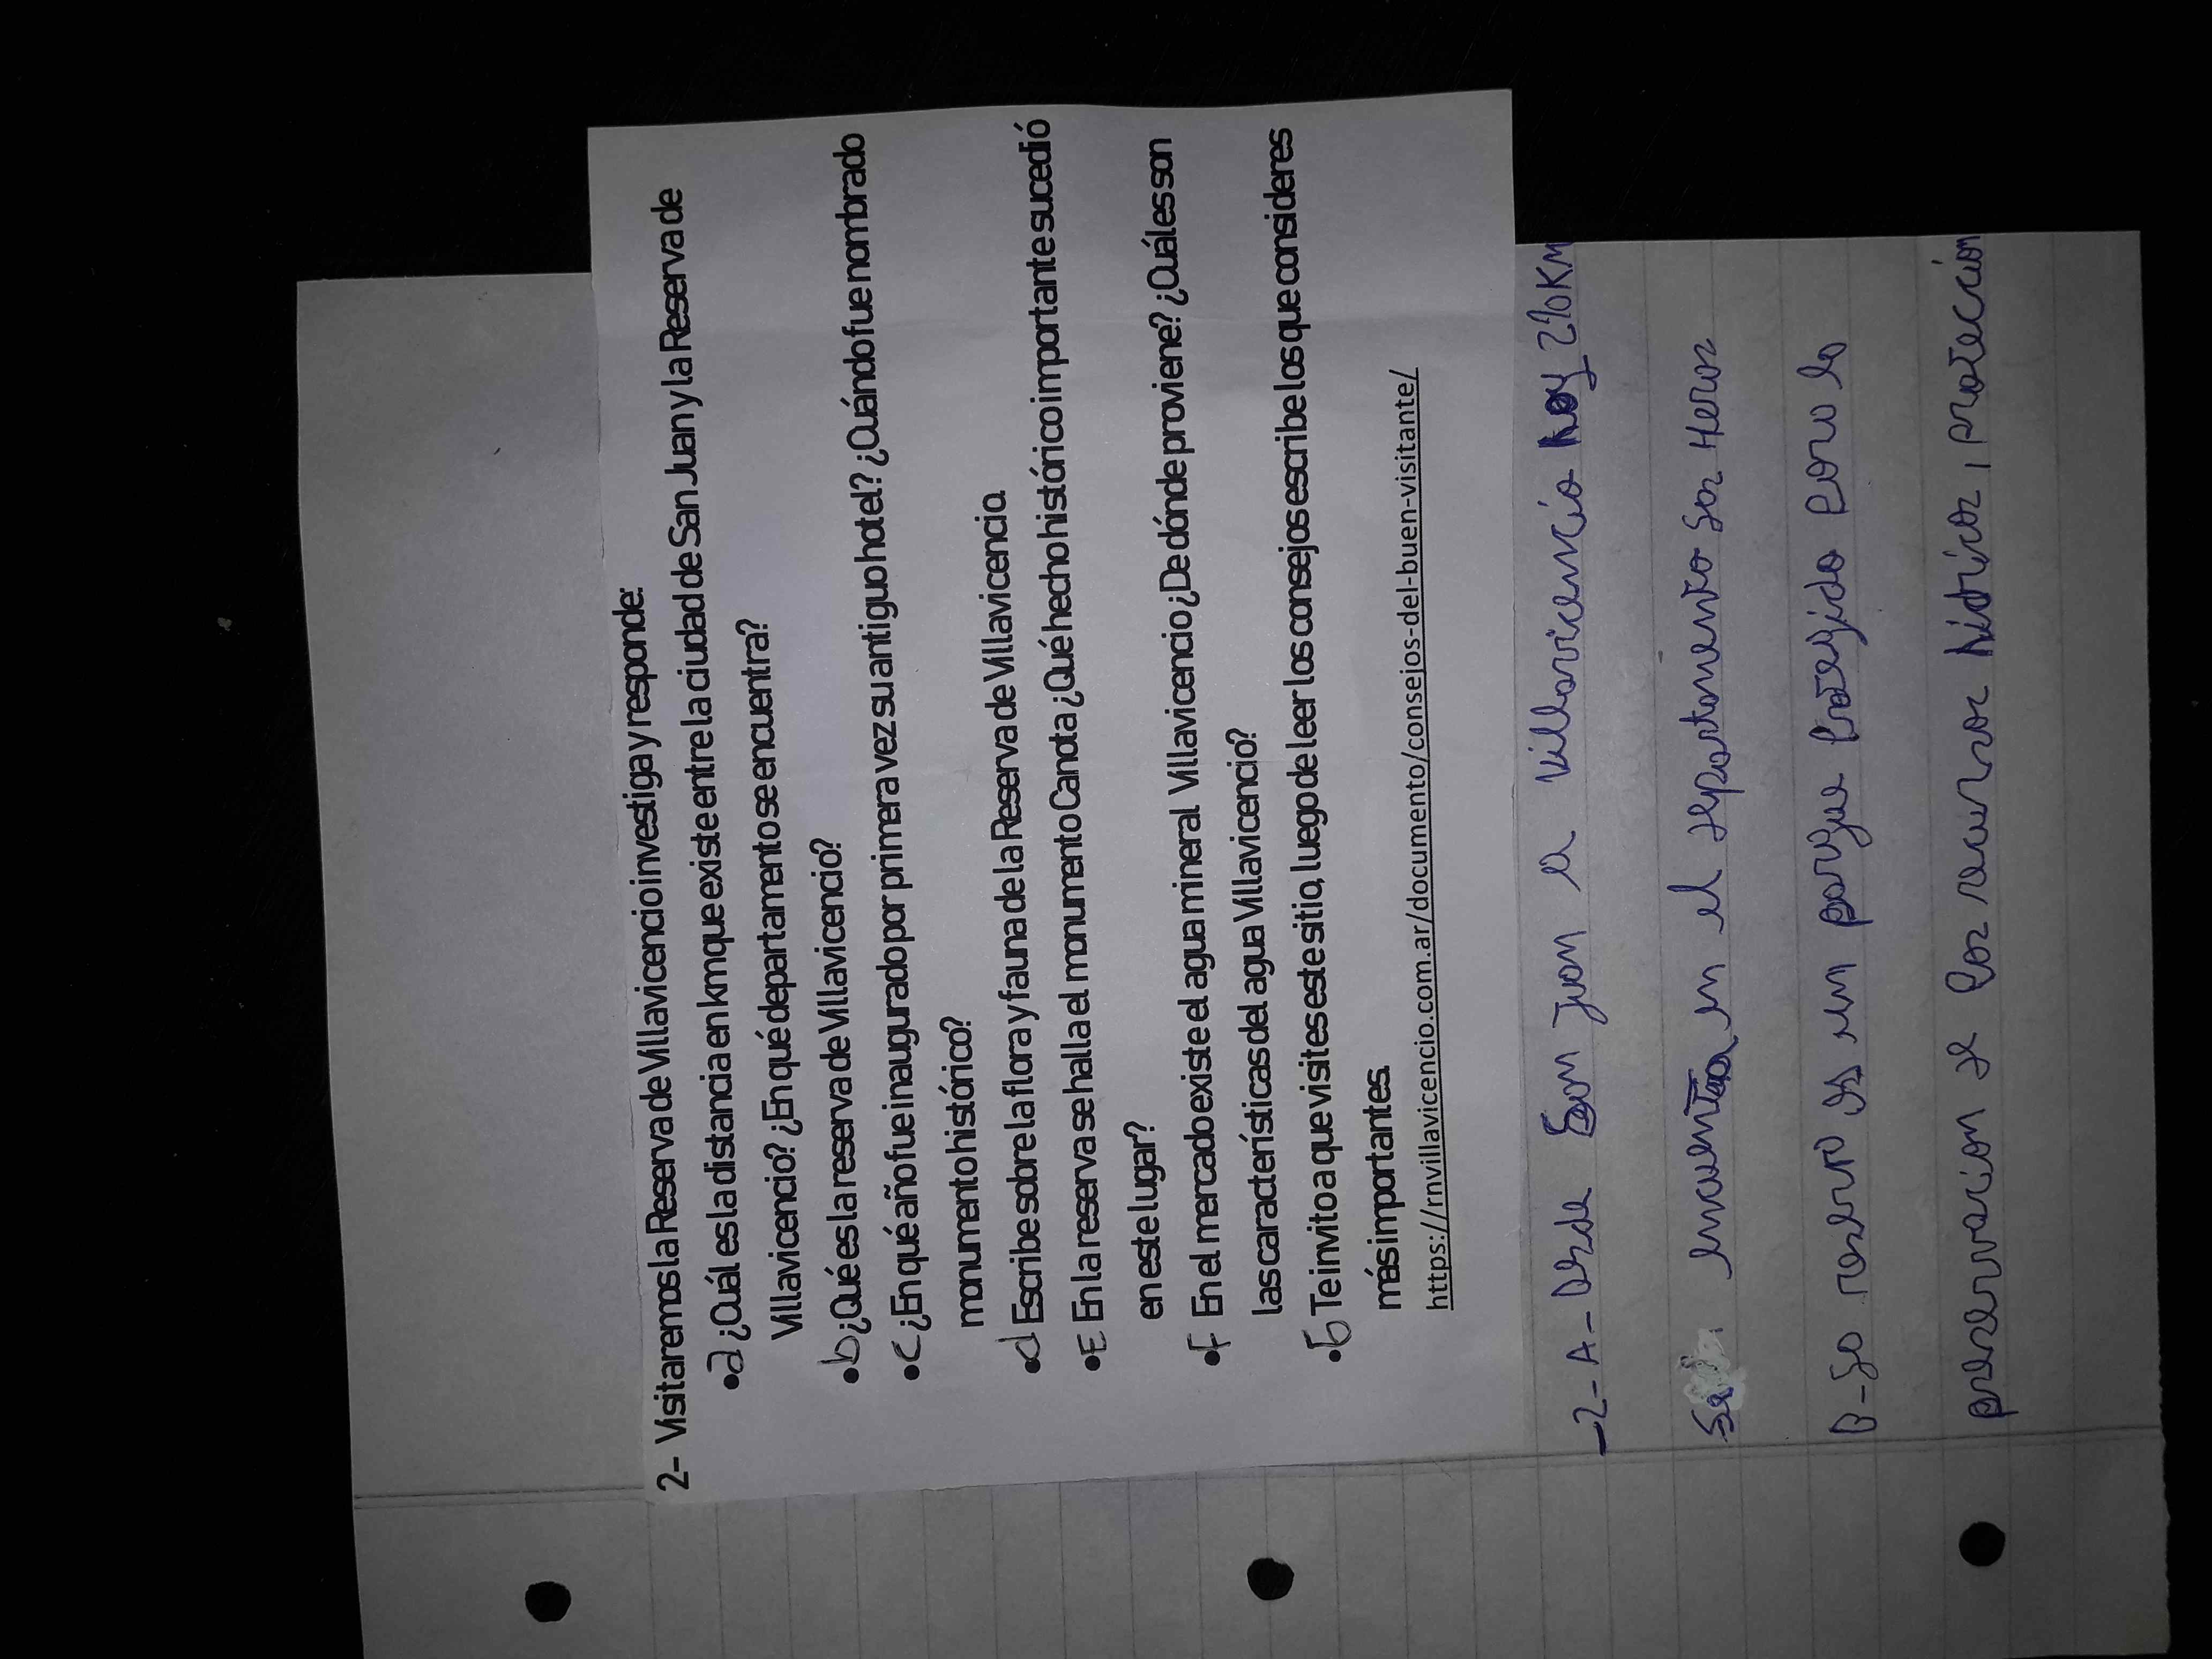 2- Visitaremos la Reserva de Villavicencio investiga y responde:
•a ¿Cuál es la distancia en km que existe entre la ciudad de San Juan y la Reserva de
Villavicencio? ¿En qué departamento se encuentra?
•b ¿Qué es la reserva de Villavicencio?
•c ¿En qué año fue inaugurado por primera vez su antiguo hotel? ¿Cuándo fue nombrado
monumento histórico?
•d Escribe sobre la flora y fauna de la Reserva de Villavicencio.
•E En la reserva se halla el monumento Canota ¿Qué hecho histórico importante sucedió
en este lugar?
•F En el mercado existe el agua mineral Villavicencio ¿De dónde proviene? ¿Cuáles son
las características del agua Villavicencio?
•G Te invito a que visites este sitio, luego de leer los consejos escribe los que consideres
más importantes.
https://rnvillavicencio.com.ar/documento/consejos-del-buen-visitante/
-2- A- Desde San Juan a Villavicencio hay KM
Se encuentra en el departamento las Heras
B- La reserva es un parque protegido para la
preservacion de los recursos hidricos, protección